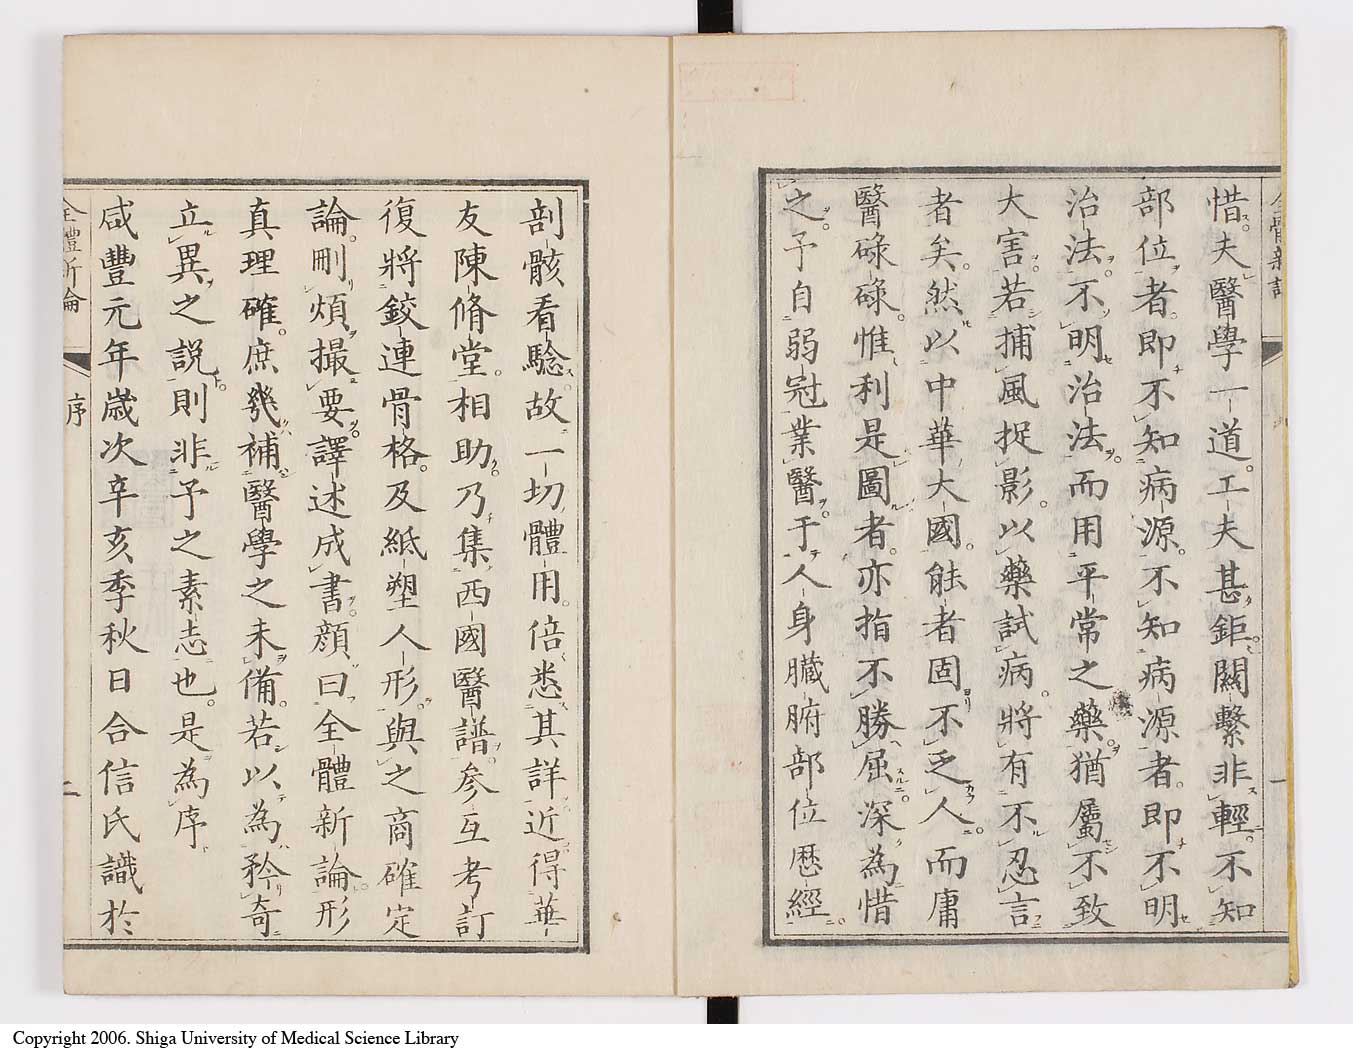 惜夫醫學一道工夫甚鉅關繫非輕不知
部位者即不知病源不知病源者即不明
治法不明治法而用平常之藥猶屬不致
大害若捕風捉影以藥試病將有不忍言
者矣然以中華大國能者固不乏人而庸
醫碌碌惟利是圖者亦指不勝屈深為惜
之予自弱冠業醫于人身臟腑部位歷經
剖骸看驗故一切體用倍悉其詳近得華
友陳脩堂相助乃集西國醫譜參互考訂
復將鉸連骨格及紙塑人形與之商確定
論刪煩撮要譯述成書顏曰全體新論形
真理確庶幾補醫學之未備若以為矜奇
立異之説則非予之素志也是為序
咸豐元年歲次辛亥季秋日合信氏識於
全體新論
序
二
Copyright 2006. Shiga University of Medical Science Library